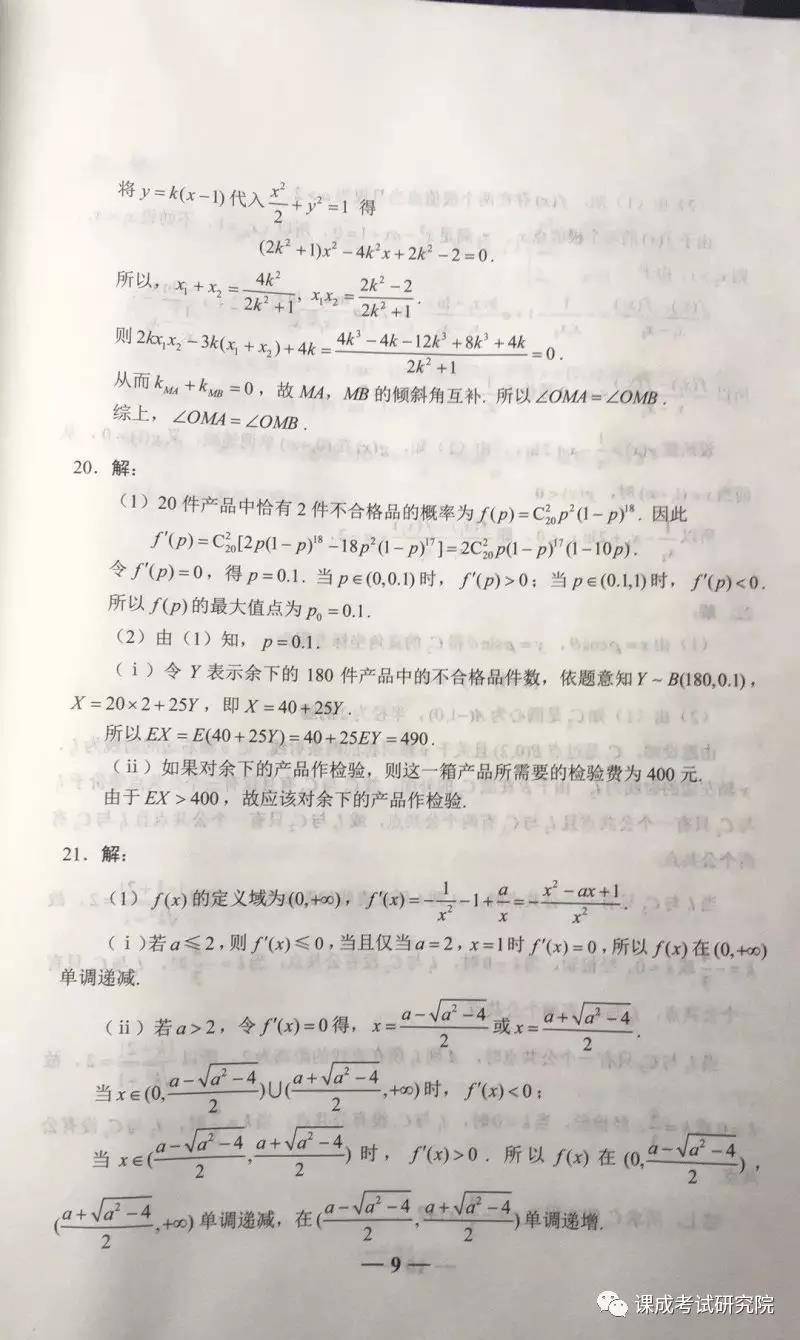 将 y = k(x−1) 代入 x²/2 + y² = 1 得
(2k² +1)x² − 4k²x + 2k² − 2 = 0 .
所以, x₁ + x₂ = 4k²/(2k² +1), x₁x₂ = (2k² − 2)/(2k² +1) .
则 2kx₁x₂ − 3k(x₁ + x₂) + 4k = (4k³ − 4k −12k³ + 8k³ + 4k)/(2k² +1) = 0 .
从而 k_MA + k_MB = 0 , 故 MA, MB 的倾斜角互补. 所以 ∠OMA = ∠OMB .
综上, ∠OMA = ∠OMB .
20. 解:
(1) 20 件产品中恰有 2 件不合格品的概率为 f(p) = C₂₀²p²(1−p)¹⁸ . 因此
f′(p) = C₂₀²[2p(1−p)¹⁸ −18p²(1−p)¹⁷] = 2C₂₀²p(1−p)¹⁷(1−10p) .
令 f′(p) = 0 , 得 p = 0.1 . 当 p∈(0,0.1) 时, f′(p) > 0 ; 当 p∈(0.1,1) 时, f′(p) < 0 .
所以 f(p) 的最大值点为 p₀ = 0.1 .
(2) 由 (1) 知, p = 0.1 .
(ⅰ) 令 Y 表示余下的 180 件产品中的不合格品件数, 依题意知 Y ~ B(180,0.1) ,
X = 20×2 + 25Y , 即 X = 40 + 25Y .
所以 EX = E(40 + 25Y) = 40 + 25EY = 490 .
(ⅱ) 如果对余下的产品作检验, 则这一箱产品所需要的检验费为 400 元.
由于 EX > 400 , 故应该对余下的产品作检验.
21. 解:
(1) f(x) 的定义域为 (0,+∞) , f′(x) = −1/x² −1 + a/x = −(x² − ax +1)/x² .
(ⅰ) 若 a ≤ 2 , 则 f′(x) ≤ 0 , 当且仅当 a = 2 , x = 1 时 f′(x) = 0 , 所以 f(x) 在 (0,+∞)
单调递减.
(ⅱ) 若 a > 2 , 令 f′(x) = 0 得, x = (a − √(a² − 4))/2 或 x = (a + √(a² − 4))/2 .
当 x∈(0, (a − √(a² − 4))/2)∪((a + √(a² − 4))/2, +∞) 时, f′(x) < 0 ;
当 x∈((a − √(a² − 4))/2, (a + √(a² − 4))/2) 时, f′(x) > 0 . 所以 f(x) 在 (0, (a − √(a² − 4))/2) ,
((a + √(a² − 4))/2, +∞) 单调递减, 在 ((a − √(a² − 4))/2, (a + √(a² − 4))/2) 单调递增.
— 9 —
课成考试研究院